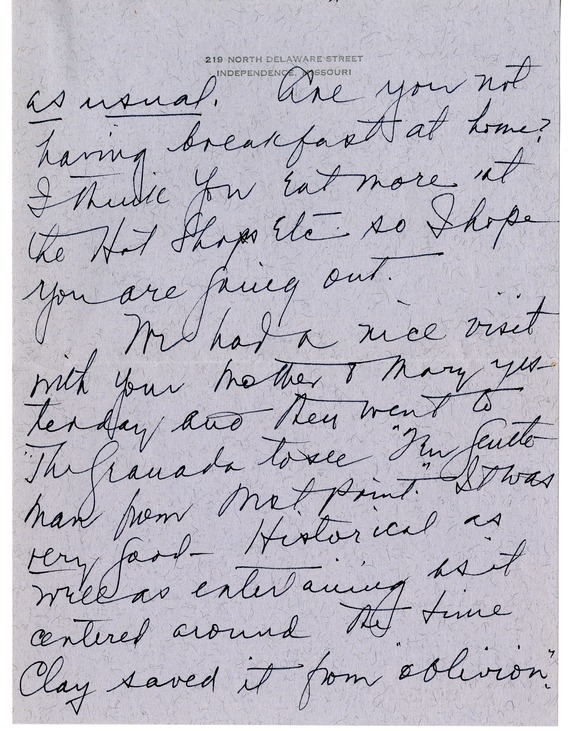 219 NORTH DELAWARE STREET
INDEPENDENCE, MISSOURI
as usual. Are you not
having breakfast at home?
I think you eat more at
the Hot Shops Etc. so I hope
you are going out.
We had a nice visit
with your mother & Mary yes-
terday and then went to
"The Granada to see "The Gentle
man from West Point." It was
very good - Historical as
well as entertaining as it
centered around the time
Clay saved it from "oblivion".